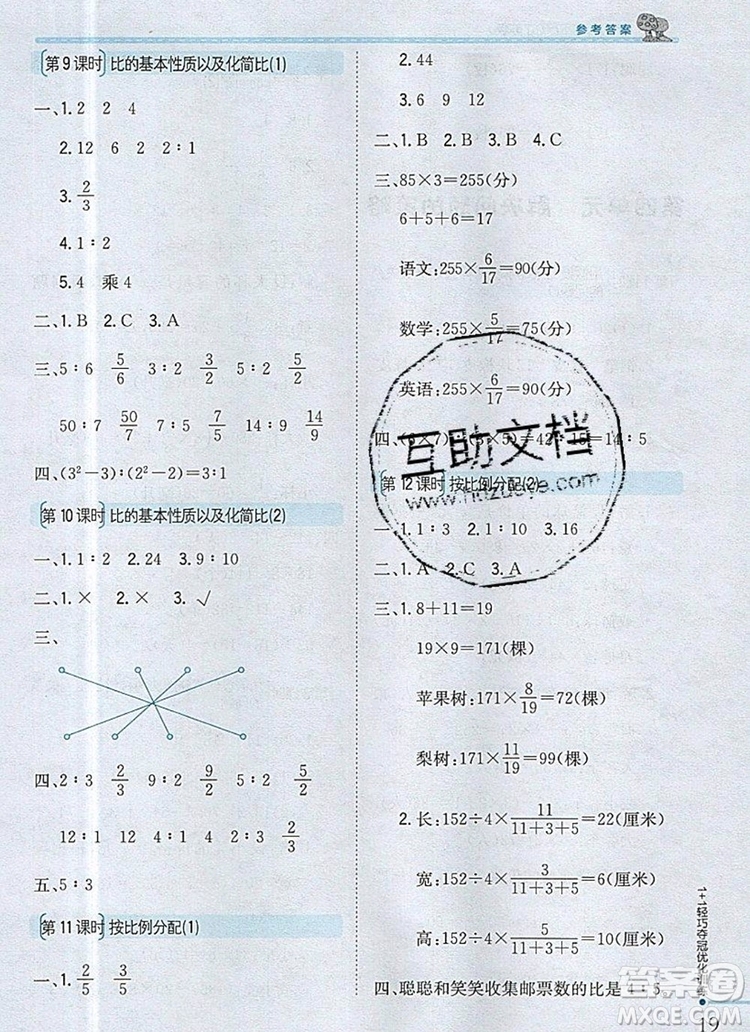 参考答案
第9课时 比的基本性质以及化简比(1)
一、1.2 2 4
2.12 6 2 2∶1
3.2/3
4.1∶2
5.4 乘4
二、1.B 2.C 3.A
三、5∶6 5/6 5∶2 5/2 5∶2 5/2
50∶7 50/7 7∶5 7/5 14∶9 14/9
四、(3²-3)∶(3²-7)=6∶2=3∶1
第10课时 比的基本性质以及化简比(2)
一、1.1∶2 2.24 3.9∶10
二、1.× 2.× 3.√
三、
四、2∶3 2/3 9∶2 9/2 2∶5 2/5
12∶1 12 4∶1 4 2∶3 2/3
五、5∶3
第11课时 按比例分配(1)
一、1.2/5 3/5
2.44
3.6 9 12
二、1.B 2.B 3.B 4.C
三、85×3=255(分)
6+5+6=17
语文:255×6/17=90(分)
数学:255×5/17=75(分)
英语:255×6/17=90(分)
四、 =42∶15=14∶5
第12课时 按比例分配(2)
一、1.1∶3 2.1∶10 3.16
二、1.A 2.C 3.A
三、1.8+11=19
19×9=171(棵)
苹果树:171×8/19=72(棵)
梨树:171×11/19=99(棵)
2.长:152÷4×11/(11+3+5)=22(厘米)
宽:152÷4×3/(11+3+5)=6(厘米)
高:152÷4×5/(11+3+5)=10(厘米)
四、聪聪和笑笑收集邮票数的比是4∶5。
1+1轻巧夺冠优化训练
19
互助文档
www.huzuoye.com
答案圈
MXQE.COM